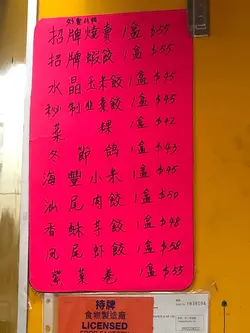 外賣價錢
招牌燒賣 1盒 $55
招牌蝦餃 1盒 $55
水晶玉米餃 1盒 $45
秘制韭菜餃 1盒 $45
菜粿 1盒 $42
冬節鴿 1盒 $43
海豐小米 1盒 $45
汕尾肉餃 1盒 $50
香酥芋餃 1盒 $48
鳳尾蝦餃 1盒 $58
紫菜卷 1盒 $55
持牌
食物製造廠
LICENSED